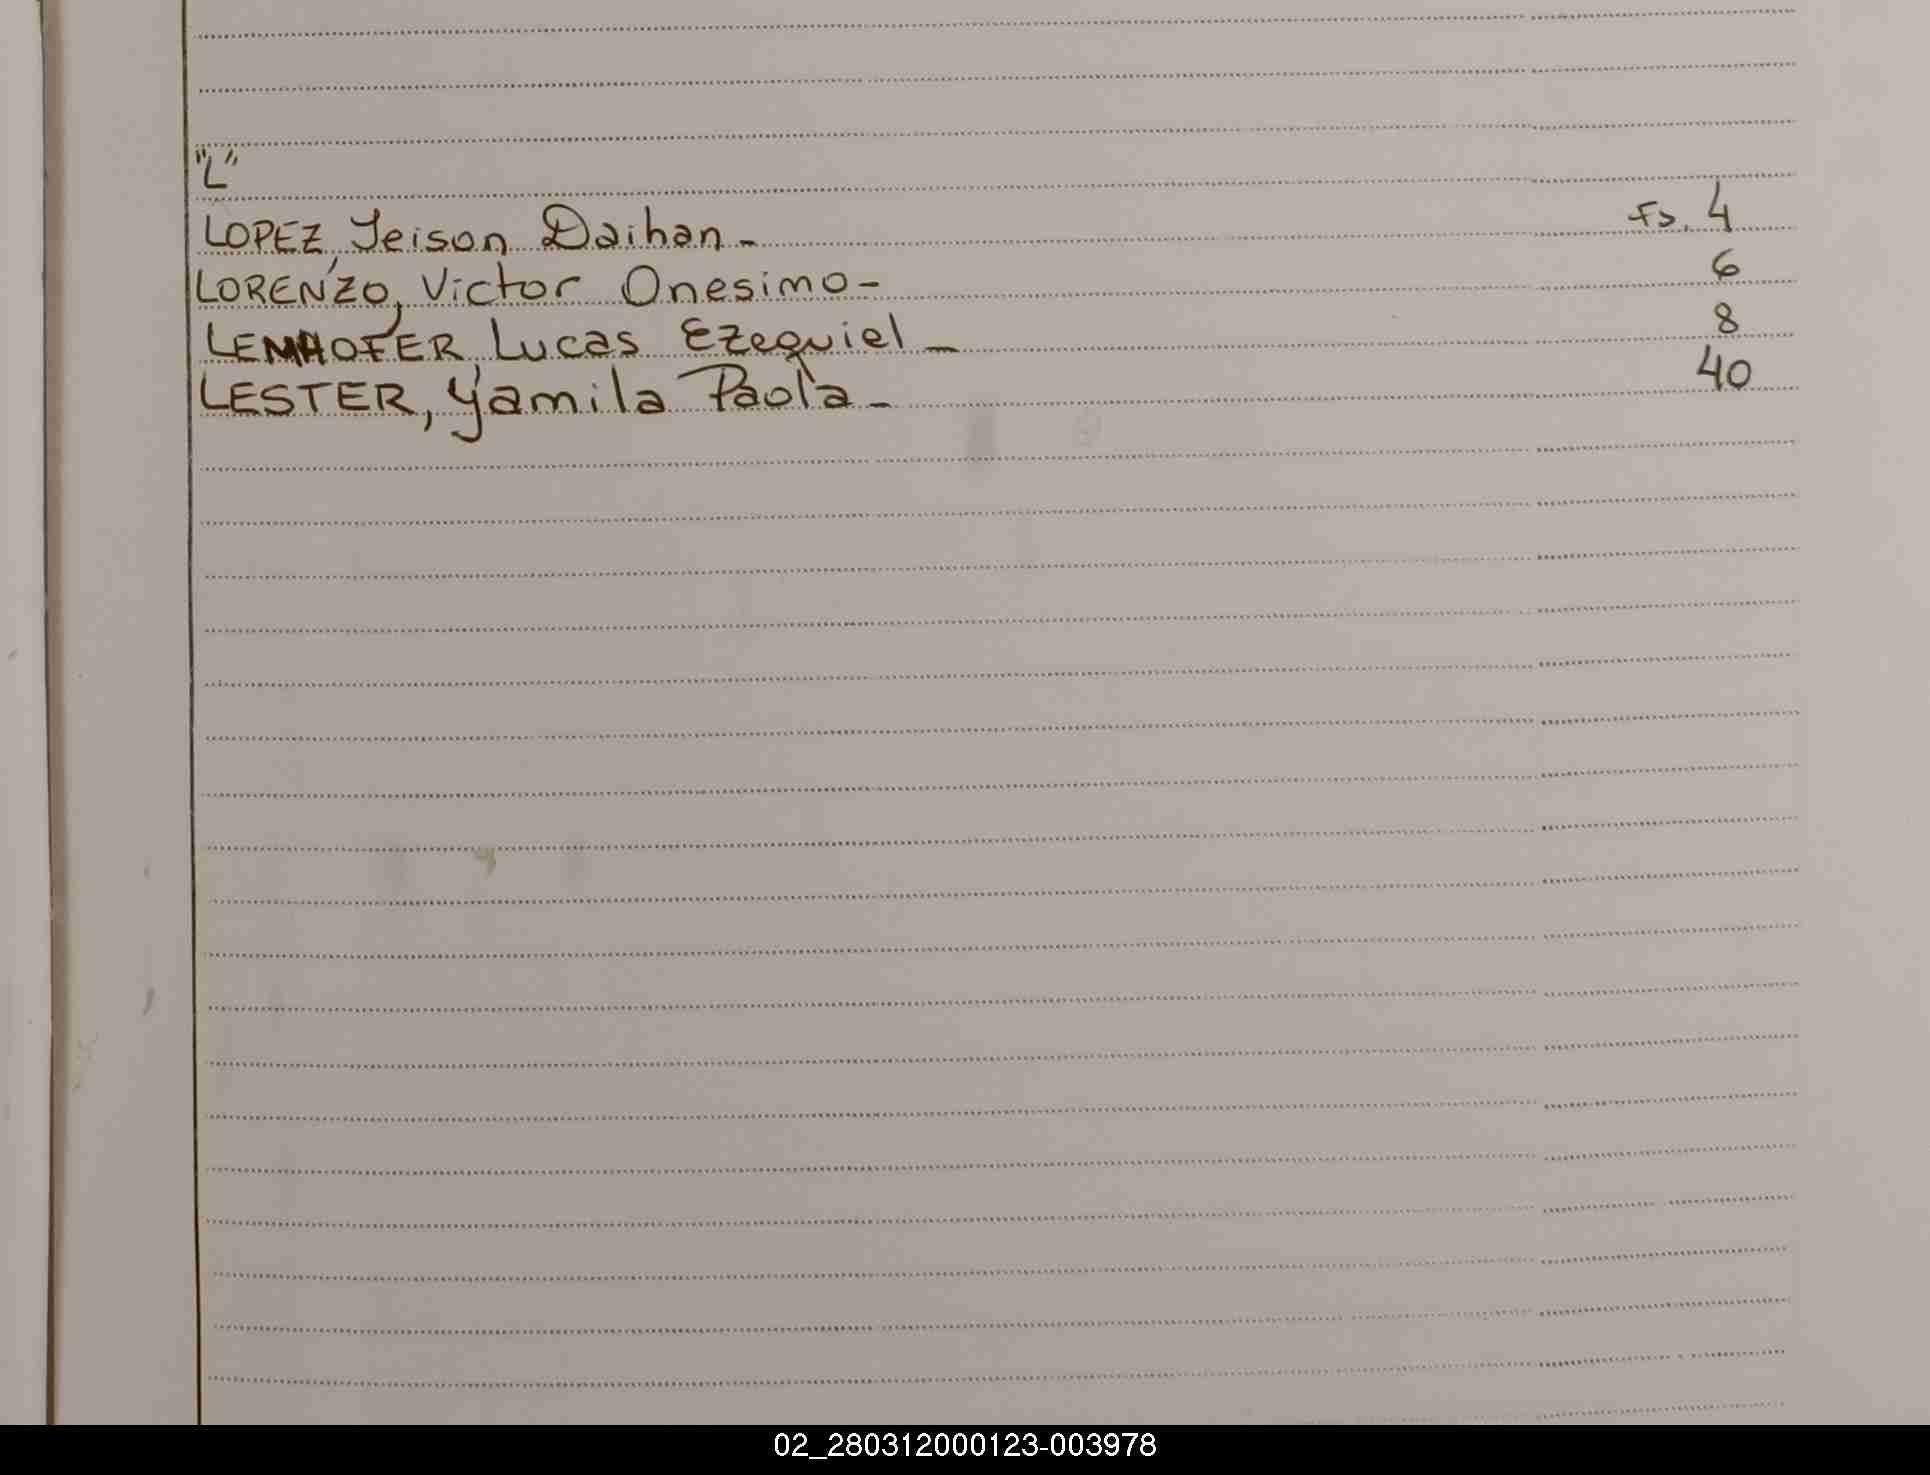 "L"
LOPEZ, Yeison Daihan - Fs. 4
LORENZO, Victor Onesimo - 6
LEMHOFER Lucas Ezequiel - 8
LESTER, Yamila Paola - 40
02_280312000123-003978